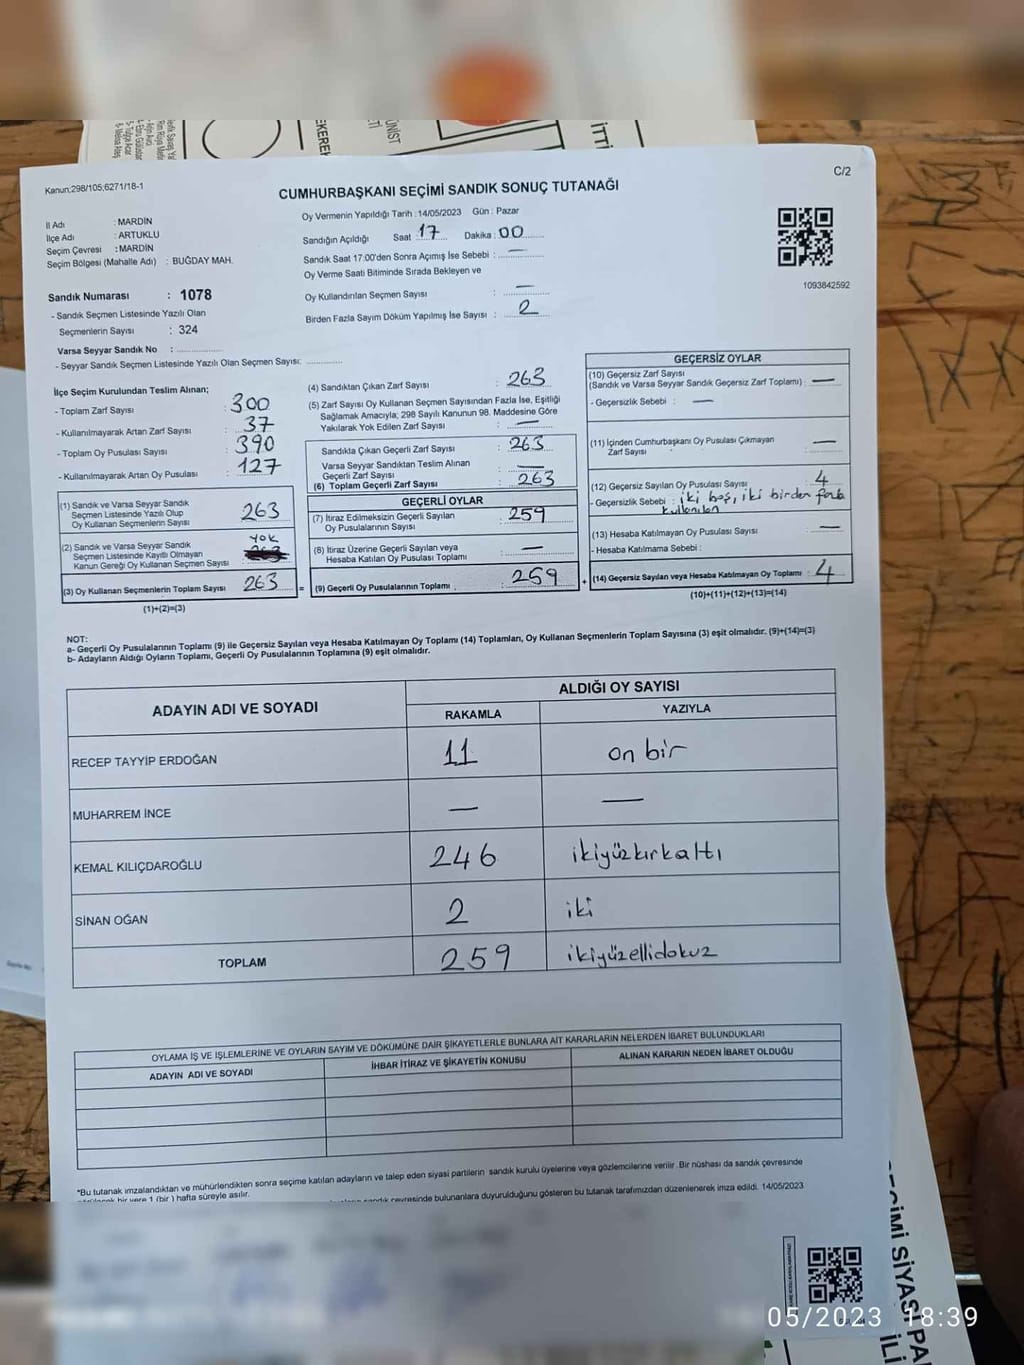 EKEREK
ÜNİST
İTTİ
Kanun;298/105;6271/18-1
C/2
CUMHURBAŞKANI SEÇİMİ SANDIK SONUÇ TUTANAĞI
İl Adı : MARDİN
İlçe Adı : ARTUKLU
Seçim Çevresi : MARDİN
Seçim Bölgesi (Mahalle Adı) : BUĞDAY MAH.
Oy Vermenin Yapıldığı Tarih : 14/05/2023 Gün : Pazar
Sandığın Açıldığı Saat : 17 Dakika : 00
Sandık Saat 17:00'den Sonra Açımış İse Sebebi : —
Oy Verme Saati Bitiminde Sırada Bekleyen ve
Oy Kullandırılan Seçmen Sayısı : —
Birden Fazla Sayım Döküm Yapılmış İse Sayısı : 2
1093842592
Sandık Numarası : 1078
- Sandık Seçmen Listesinde Yazılı Olan
Seçmenlerin Sayısı : 324
Varsa Seyyar Sandık No :
- Seyyar Sandık Seçmen Listesinde Yazılı Olan Seçmen Sayısı:
İlçe Seçim Kurulundan Teslim Alınan;
- Toplam Zarf Sayısı : 300
- Kullanılmayarak Artan Zarf Sayısı : 37
- Toplam Oy Pusulası Sayısı : 390
- Kullanılmayarak Artan Oy Pusulası : 127
(1) Sandık ve Varsa Seyyar Sandık
Seçmen Listesinde Yazılı Olup
Oy Kullanan Seçmenlerin Sayısı 263
(2) Sandık ve Varsa Seyyar Sandık
Seçmen Listesinde Kayıtlı Olmayan
Kanun Gereği Oy Kullanan Seçmen Sayısı : YOK
(3) Oy Kullanan Seçmenlerin Toplam Sayısı : 263
(1)+(2)=(3)
(4) Sandıktan Çıkan Zarf Sayısı : 263
(5) Zarf Sayısı Oy Kullanan Seçmen Sayısından Fazla İse, Eşitliği
Sağlamak Amacıyla; 298 Sayılı Kanunun 98. Maddesine Göre
Yakılarak Yok Edilen Zarf Sayısı : —
Sandıkta Çıkan Geçerli Zarf Sayısı : 263
Varsa Seyyar Sandıktan Teslim Alınan
Geçerli Zarf Sayısı : —
(6) Toplam Geçerli Zarf Sayısı : 263
GEÇERLİ OYLAR
(7) İtiraz Edilmeksizin Geçerli Sayılan
Oy Pusulalarının Sayısı : 259
(8) İtiraz Üzerine Geçerli Sayılan veya
Hesaba Katılan Oy Pusulası Toplamı : —
= (9) Geçerli Oy Pusulalarının Toplamı : 259 +
GEÇERSİZ OYLAR
(10) Geçersiz Zarf Sayısı
(Sandık ve Varsa Seyyar Sandık Geçersiz Zarf Toplamı) : —
- Geçersizlik Sebebi : —
(11) İçinden Cumhurbaşkanı Oy Pusulası Çıkmayan
Zarf Sayısı : —
(12) Geçersiz Sayılan Oy Pusulası Sayısı : 4
- Geçersizlik Sebebi : iki boş, iki birden fazla
kullanılan
(13) Hesaba Katılmayan Oy Pusulası Sayısı : —
- Hesaba Katılmama Sebebi :
(14) Geçersiz Sayılan veya Hesaba Katılmayan Oy Toplamı : 4
(10)+(11)+(12)+(13)=(14)
NOT:
a- Geçerli Oy Pusulalarının Toplamı (9) ile Geçersiz Sayılan veya Hesaba Katılmayan Oy Toplamı (14) Toplamları, Oy Kullanan Seçmenlerin Toplam Sayısına (3) eşit olmalıdır. (9)+(14)=(3)
b- Adayların Aldığı Oyların Toplamı, Geçerli Oy Pusulalarının Toplamına (9) eşit olmalıdır.
ADAYIN ADI VE SOYADI ALDIĞI OY SAYISI
RAKAMLA YAZIYLA
RECEP TAYYİP ERDOĞAN 11 on bir
MUHARREM İNCE — —
KEMAL KILIÇDAROĞLU 246 ikiyüzkırkaltı
SİNAN OĞAN 2 iki
TOPLAM 259 ikiyüzellidokuz
OYLAMA İŞ VE İŞLEMLERİNE VE OYLARIN SAYIM VE DÖKÜMÜNE DAİR ŞİKAYETLERLE BUNLARA AİT KARARLARIN NELERDEN İBARET BULUNDUKLARI
ADAYIN ADI VE SOYADI İHBAR İTİRAZ VE ŞİKAYETİN KONUSU ALINAN KARARIN NEDEN İBARET OLDUĞU
*Bu tutanak imzalandıktan ve mühürlendikten sonra seçime katılan adayların ve talep eden siyasi partilerin sandık kurulu üyelerine veya gözlemcilerine verilir .Bir nüshası da sandık çevresinde
bir yere 1 (bir ) hafta süreyle asılır.
sandık çevresinde bulunanlara duyurulduğunu gösteren bu tutanak tarafımızdan düzenlenerek imza edildi. 14/05/2023
SİYASİ PA
05/2023 18:39